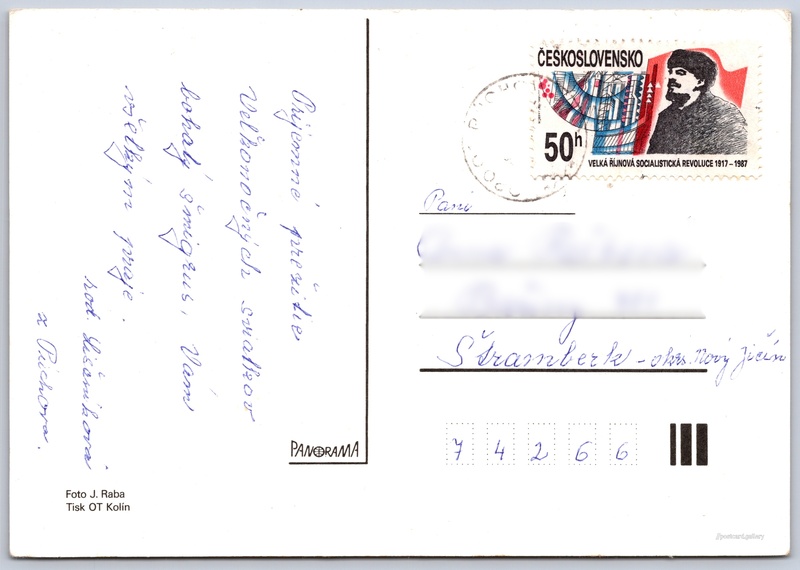 Príjemné prežitie
Veľkonočných sviatkov
bohatý šmigrus, Vám
všetkým praje.
rod. Liščániková
z Púchova.
PANORAMA
Foto J. Raba
Tisk OT Kolín
ČESKOSLOVENSKO
50h
VELKÁ ŘÍJNOVÁ SOCIALISTICKÁ REVOLUCE 1917 – 1987
Paní
Štramberk - okres Nový Jičín
7 4 2 6 6